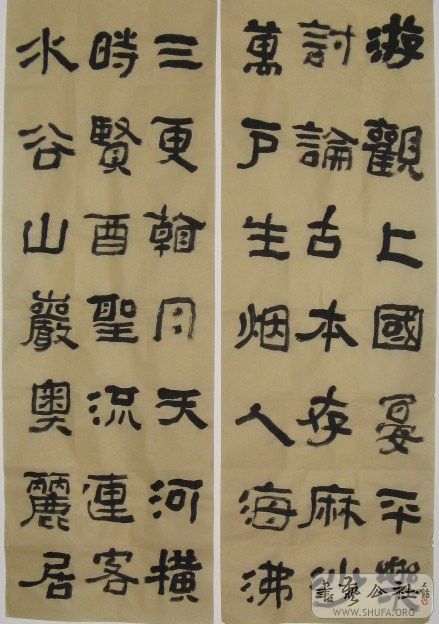 游觀上國宴平樂
討論古本存麻
萬戶生烟人海沸
三更月天河橫
時賢酉聖流連客
水谷山巖奧麗居
書藝公社
WWW.SHUFA.ORG